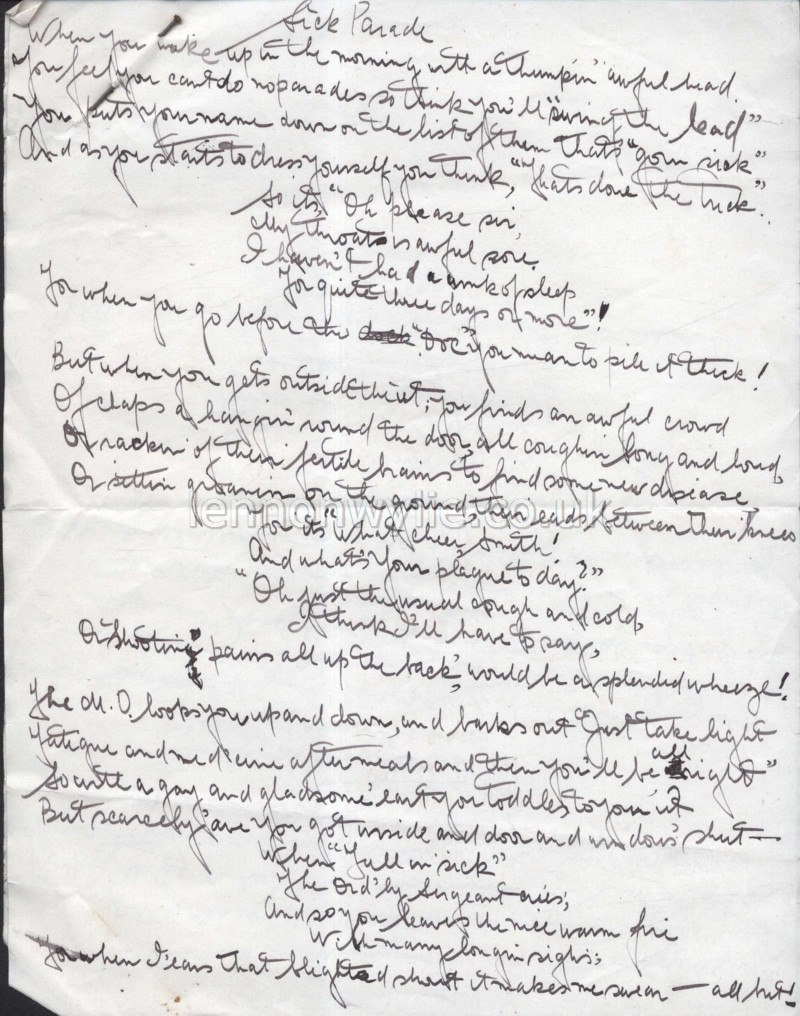 Sick Parade
When you wake up in the morning with a thumpin' awful head.
You feel you cant do no parades so think you'll "swing the lead"
You puts your name down on the list of them thats "goin sick"
And as you starts to dress yourself you think, "That's done the trick".
So its, "Oh please sir,
My throat is awful sore.
I haven't had a wink of sleep
For quite three days or more"!
For when you go before the "Doc" you mean to pile it thick!
But when you gets outside the 'ut, you finds an awful crowd
Of chaps a hangin' round the door, all coughin long and loud,
Or rackin' of their fertile brains to find some new disease,
Or sittin groanin on the ground their eads between their knees
For its "What cheer, Smith!
And what's your plague to day?"
"Oh just the usual cough and cold,
I think I'll have to say,
Or "Shooting pains all up the back", would be a splendid wheeze!
The M.O. looks you up and down, and barks out "Just take light
Fatigue and med'cine after meals and then you'll be all right"
So with a gay and gladsome 'eart you toddles to your 'ut
But scarcely 'ave you got inside and door and windows shut —
When "Fall in sick"
The Ord'ly Sergeant cries;
And so you leaves the nice warm fire
With many longin sighs;
For when I 'ears that blighted shout it makes me swear — all but!
lennonwylie.co.uk